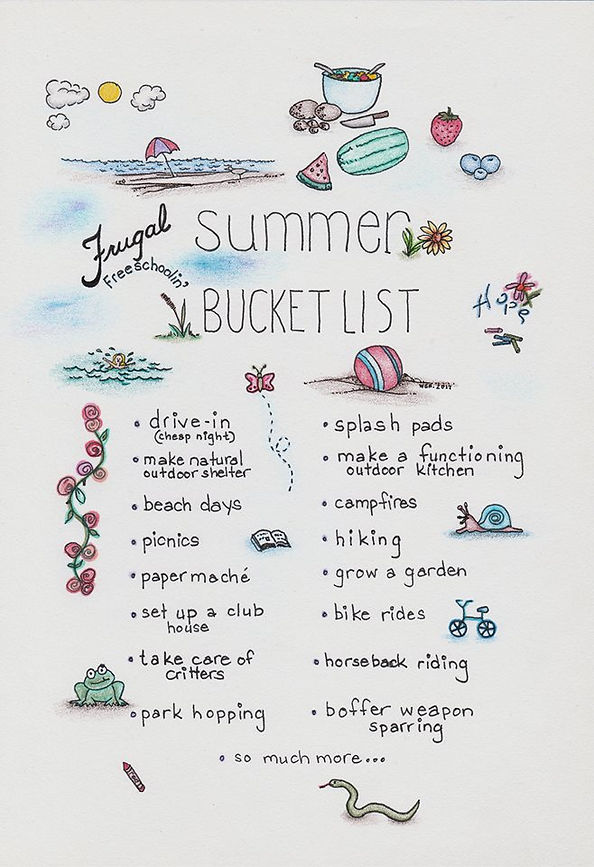 Frugal
Freeschoolin'
summer
BUCKET LIST
Hope
• drive-in
(cheap night)
• make natural
outdoor shelter
• beach days
• picnics
• papermaché
• set up a club
house
• take care of
critters
• park hopping
• splash pads
• make a functioning
outdoor kitchen
• campfires
• hiking
• grow a garden
• bike rides
• horseback riding
• boffer weapon
sparring
• so much more...